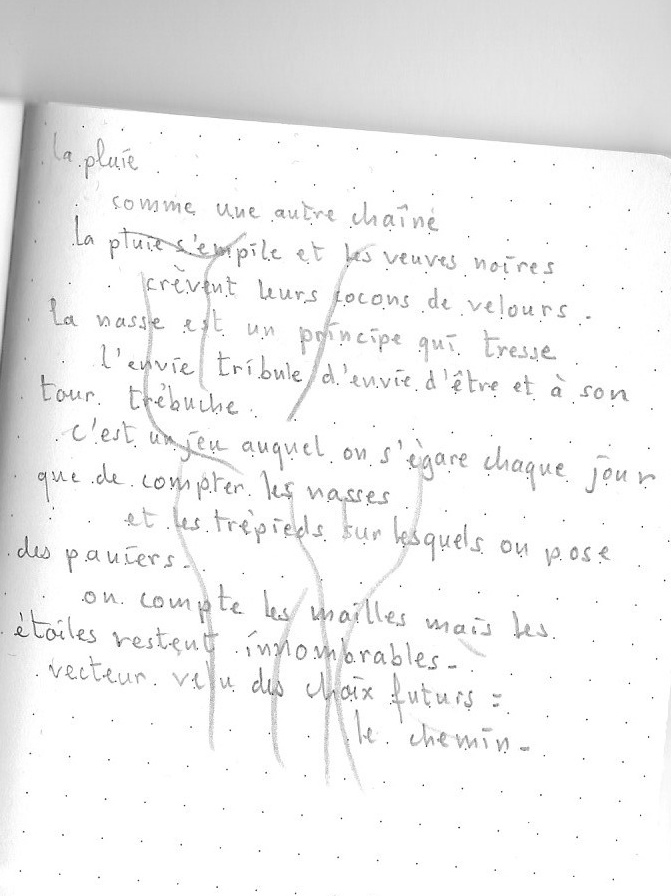 la pluie
comme une autre chaîne
la pluie s'empile et les veuves noires
crèvent leurs cocons de velours.
la nasse est un principe qui tresse
l'envie tribule d'envie d'être et à son
tour trébuche.
c'est un jeu auquel on s'égare chaque jour
que de compter les nasses
et les trépieds sur lesquels on pose
des paniers.
on compte les mailles mais les
étoiles restent innombrables.
vecteur velu des choix futurs :
le chemin.